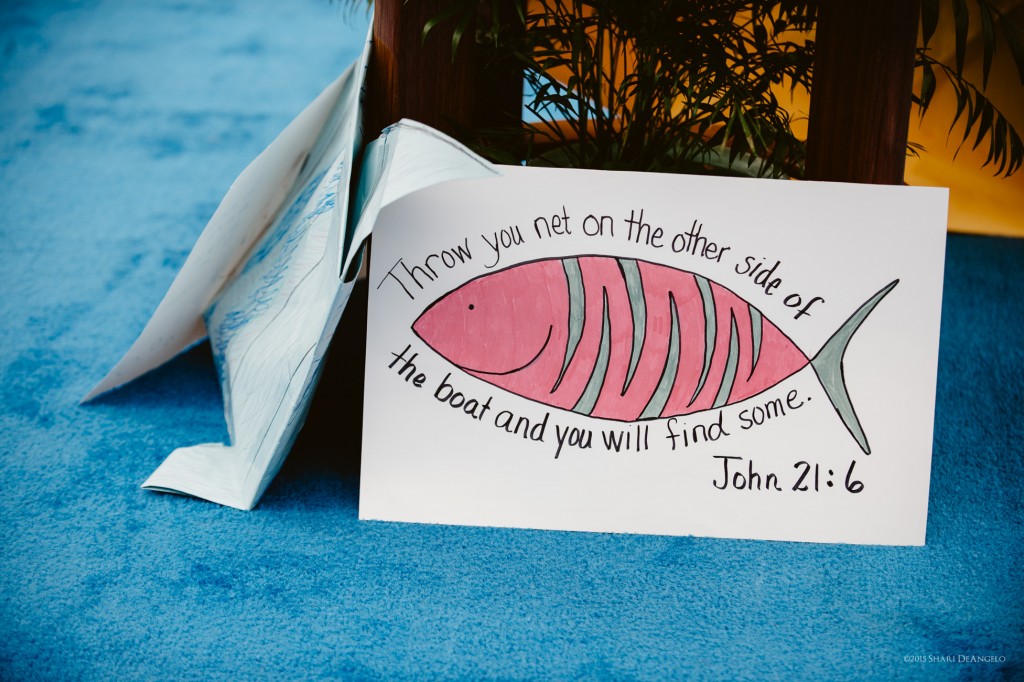 Throw you net on the other side of
the boat and you will find some.
John 21:6
©2015 SHARI DEANGELO